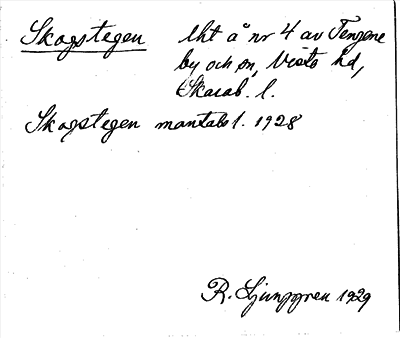 Skogstegen lht å nr 4 av Tengene
by och sn, Viste hd,
Skarab. l.
Skogstegen mantalsl. 1928
R. Ljunggren 1929